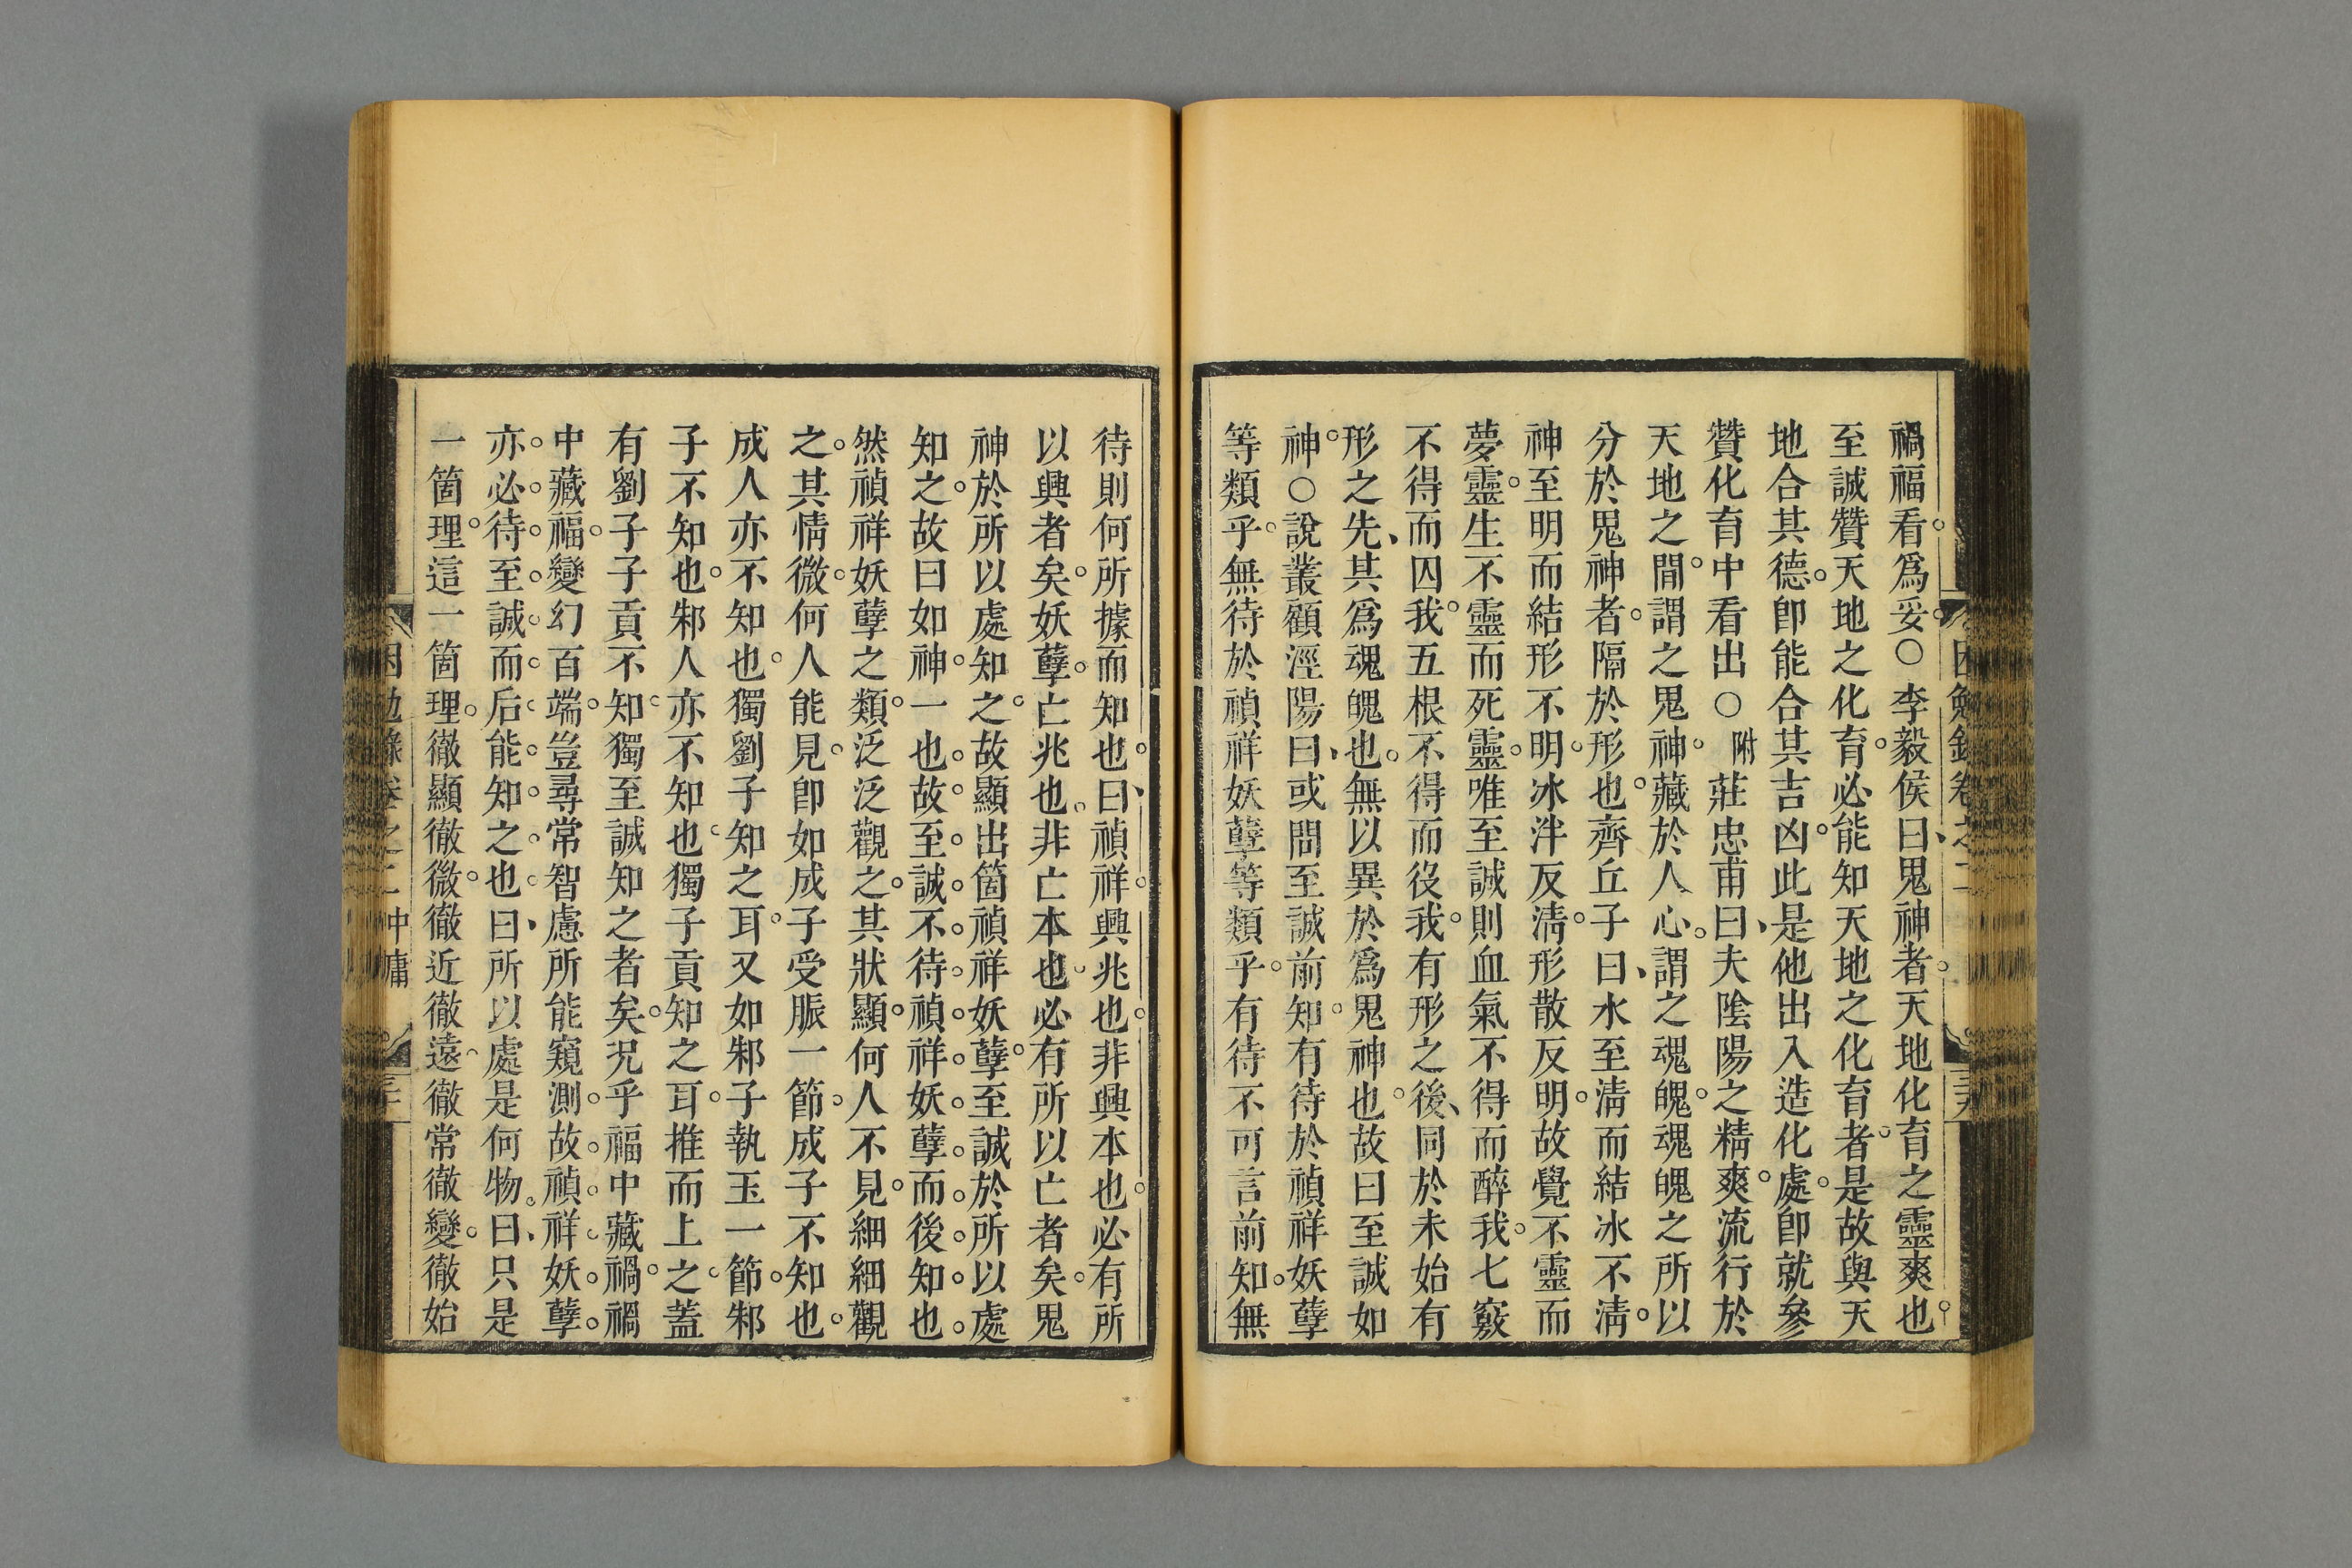 禍福看爲妥○李毅侯曰鬼神者天地化育之靈爽也
至誠贊天地之化育必能知天地之化育者是故與天
地合其德卽能合其吉凶此是他出入造化處卽就參
贊化育中看出○附莊忠甫曰夫陰陽之精爽流行於
天地之間謂之鬼神藏於人心謂之魂魄魂魄之所以
分於鬼神者隔於形也齊丘子曰水至淸而結冰不淸
神至明而結形不明冰泮反淸形散反明故覺不靈而
夢靈生不靈而死靈唯至誠則血氣不得而醉我七竅
不得而囚我五根不得而役我有形之後同於未始有
形之先其爲魂魄也無以異於爲鬼神也故曰至誠如
神○說叢顧涇陽曰或問至誠前知有待於禎祥妖孽
等類乎無待於禎祥妖孽等類乎有待不可言前知無
待則何所據而知也曰禎祥興兆也非興本也必有所
以興者矣妖孽亡兆也非亡本也必有所以亡者矣鬼
神於所以處知之故顯出箇禎祥妖孽至誠於所以處
知之故曰如神一也故至誠不待禎祥妖孽而後知也
然禎祥妖孽之類泛泛觀之其狀顯何人不見細細觀
之其情微何人能見卽如成子受脤一節成子不知也
成人亦不知也獨劉子知之耳又如邾子執玉一節邾
子不知也邾人亦不知也獨子貢知之耳推而上之蓋
有劉子子貢不知獨至誠知之者矣况乎福中藏禍禍
中藏福變幻百端豈尋常智慮所能窺測故禎祥妖孽
亦必待至誠而后能知之也曰所以處是何物曰只是
一箇理這一箇理徹顯徹微徹近徹遠徹常徹變徹始
困勉錄卷之二 中庸